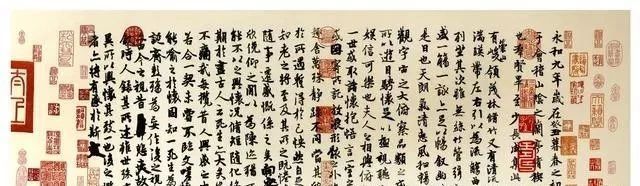 永和九年歲在癸丑暮春之初
于會稽山陰之蘭亭脩稧
也群賢畢至少長咸集
有崇山峻領茂林脩竹又有清流
湍暎帶左右引以為流觴曲
列坐其次雖無絲竹管弦
盛一觴一詠亦足以暢敘幽
是日也天朗氣清惠風和暢
觀宇宙之大俯察品類之
所以遊目騁懷足以極視聽
娛信可樂也夫人之相與俯
一世或取諸懷抱悟言一室
或因寄所託放浪形骸
趣舍萬殊靜躁不同當其
於所遇蹔得於己怏然自
知老之將至及其所之既惓
隨事遷感慨係之矣向
欣俛仰之閒以為陳迹猶
能不以之興懷況脩短隨化
期於盡古人云死生亦大矣
不痛哉每攬昔人興感之
若合一契未嘗不臨文嗟
能喻之於懷固知一死生為
誕齊彭殤為妄作後之視
亦由今之視昔悲夫故
敘時人錄其所述雖世殊
異所以興懷其致一也後之
者亦將有感於斯